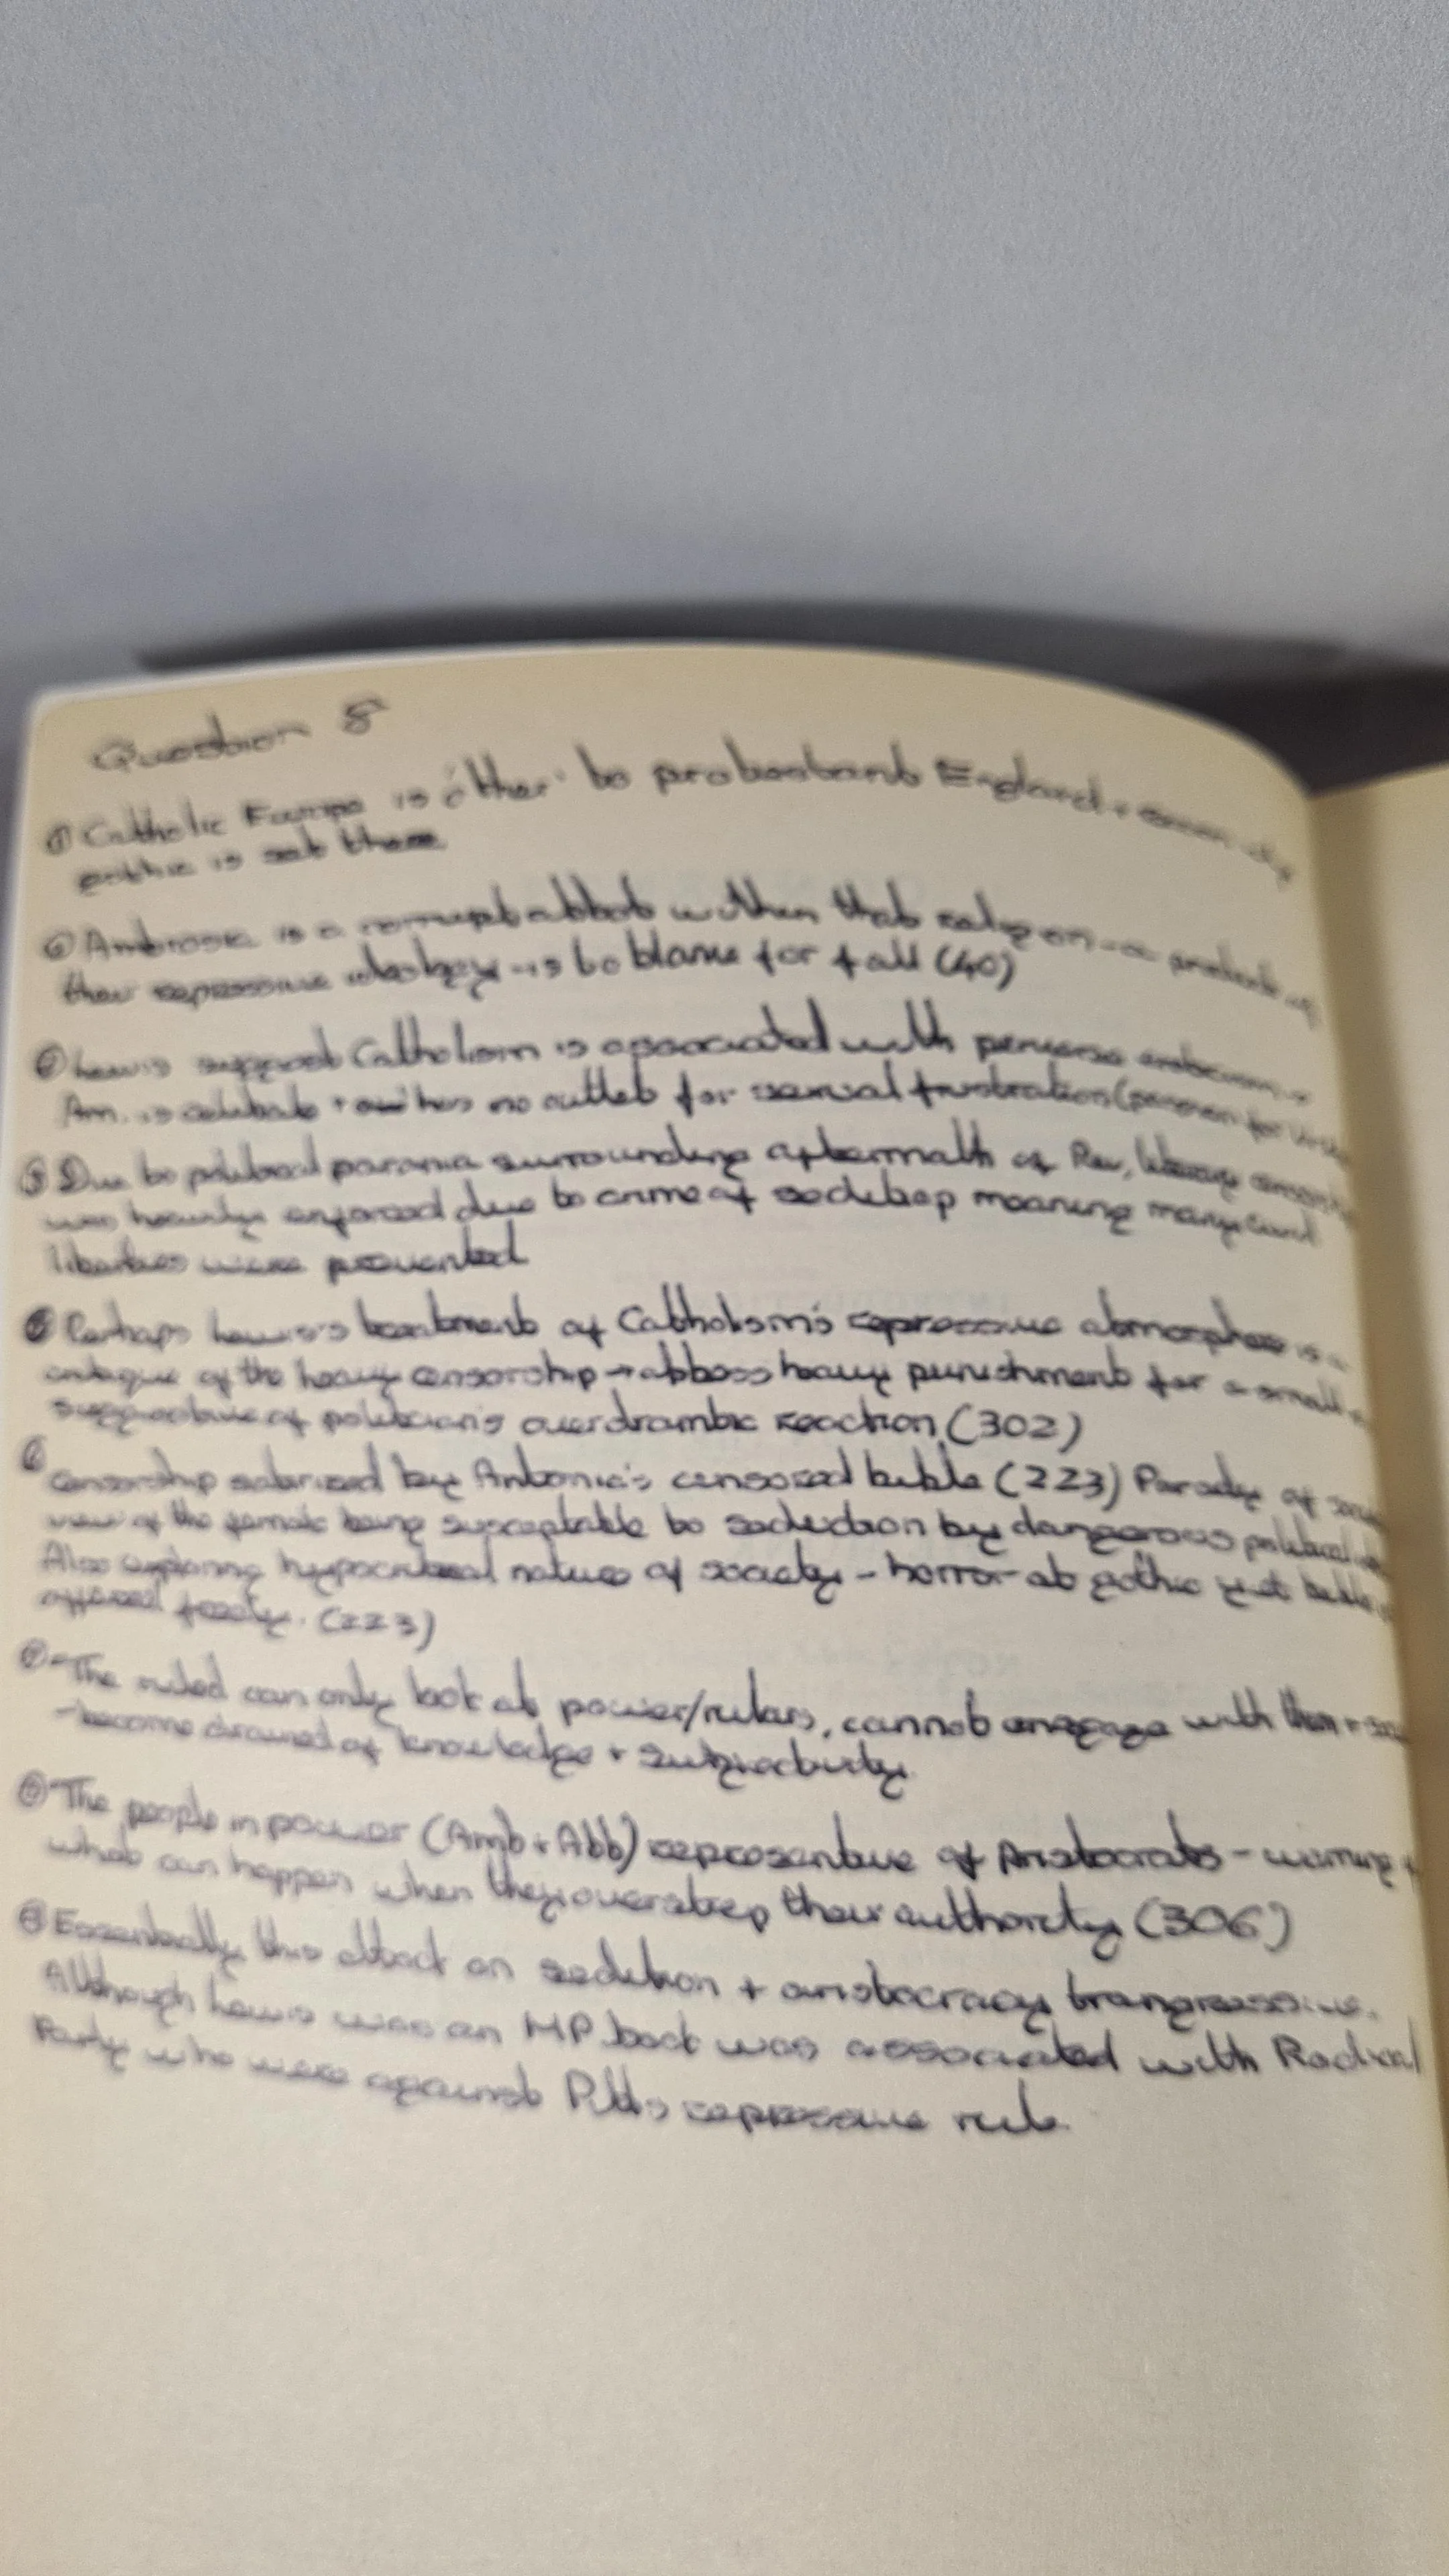 Question 8
① Catholic Europe is 'other' to protestant England +
gothic is set there
② Ambrosio is a corrupt abbot within that religion - a product of
their repressive ideology - is to blame for fall (40)
Lewis suggest Catholism is associated with perverse
Am. is celibate + has no outlet for sexual frustration (passion for
Due to political parania surrounding aftermath of Rev, literary
was heavily enforced due to crime of sedition meaning many civil
liberties were prevented
Perhaps Lewis's treatment of Catholism's repressive atmosphere is a
critique of the heavy censorship → abbess heavy punishment for a small
suggestive of politician's overdramtic reaction (302)
⑥ Censorship satarized by Antonia's censored bible (223) Parody of
view of the female being susceptable to seduction by dangerous political
Also exploring hypocritical nature of society - horror at gothic yet bible
(223)
- The ruled can only look at power/rulers, cannot engage with them +
- become drained of knowledge + subjectivity.
The people in power (Amb + Abb) representive of Aristocrats - warning
what can happen when they overstep their authority (306)
Essentially this attack on sedition + aristocracy trangressive.
Although Lewis was an MP was associated with Radical
Party who were against Pitts repressive rule.